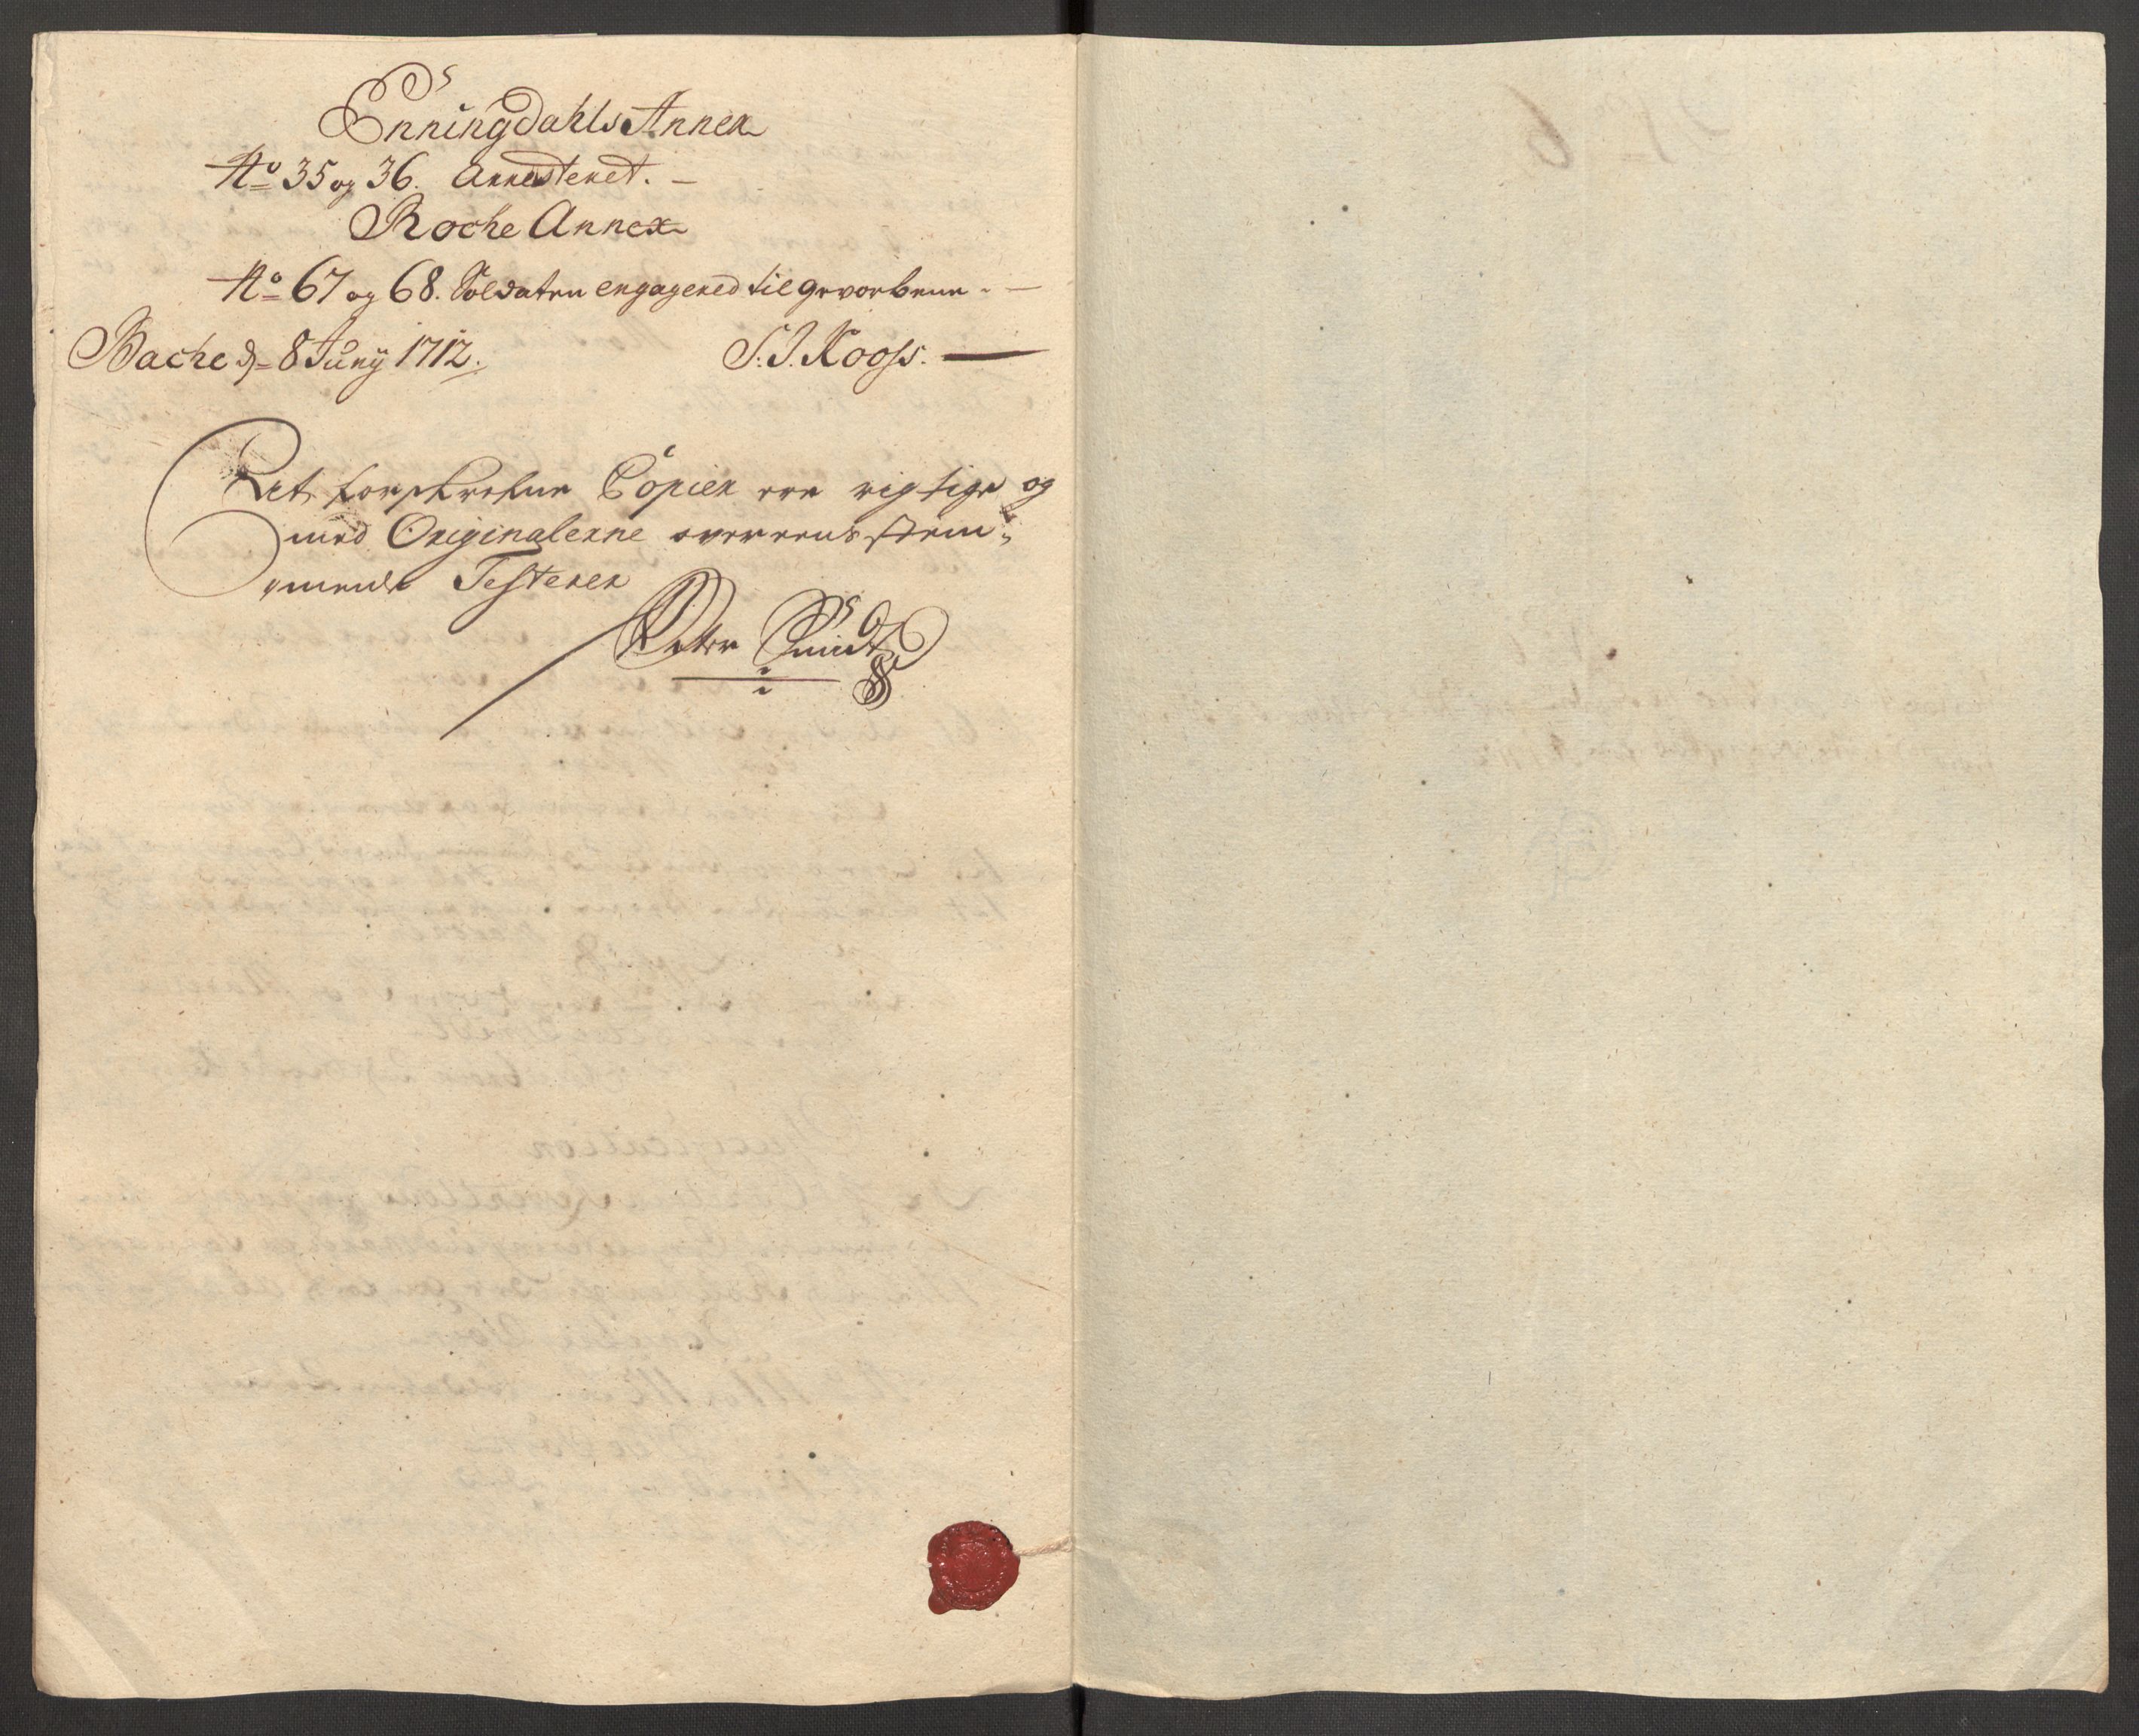 Enningdahls Annex
No 35 og 36. Arresteret. –
Roche Annex
No 67 og 68. Soldaten engagered til gevorbene. –
Bache d. 8 Juny 1712. S. J. Kooss. —
At forskrefne Copier ere rigtige og
med Originalerne overeensstem¬
mende Testerer
Peter